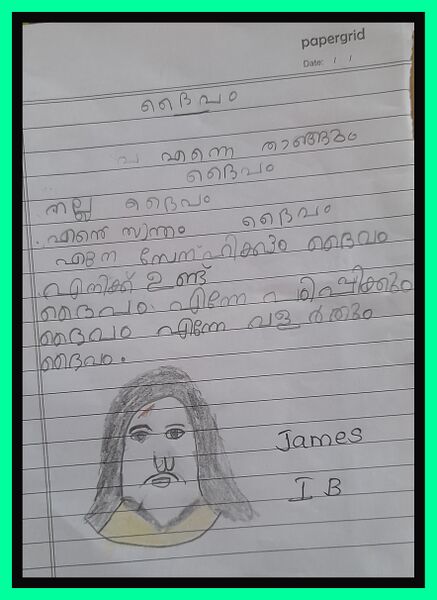 papergrid
Date: / /
ദൈവം
എന്നെ താങ്ങും
ദൈവം
നല്ല ദൈവം
എൻ്റെ സ്വന്തം ദൈവം
എന്നെ സ്നേഹിക്കും ദൈവം
എനിക്ക് ഉണ്ട്
ദൈവം. എന്നേ
ദൈവം എന്നേ വളർത്തും
ദൈവം.
James
I B